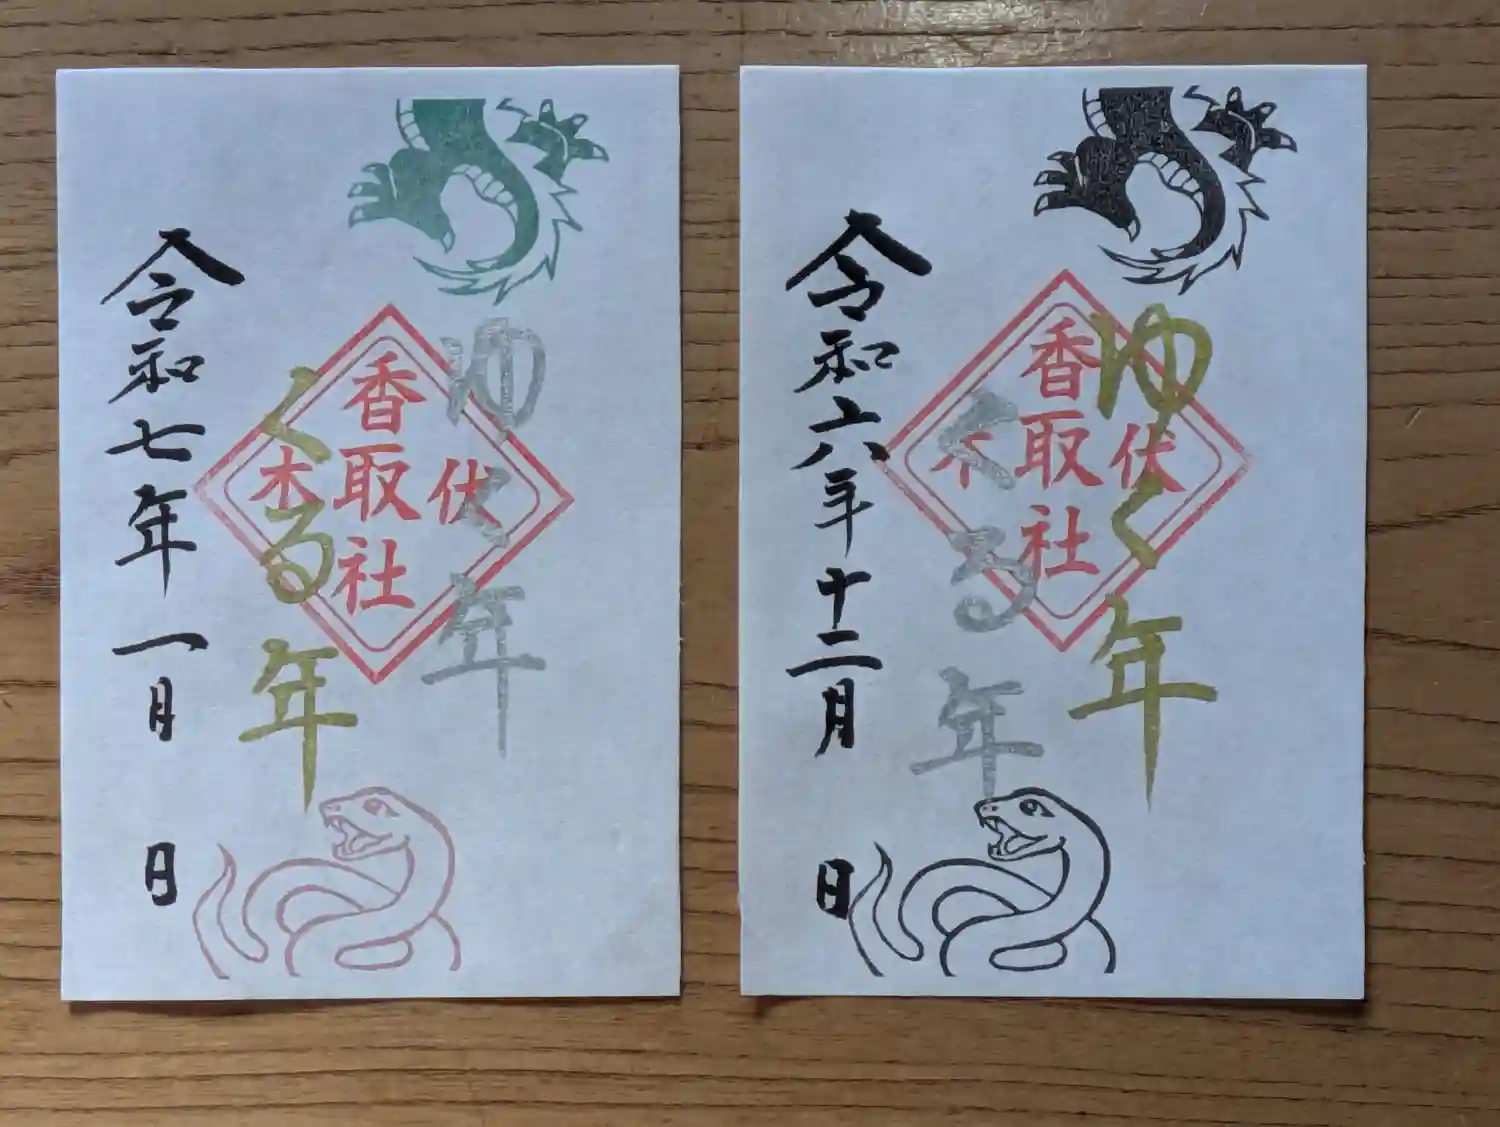 ゆく年
伏木
香取社
くる年
令和七年一月 日
ゆく年
伏木
香取社
くる年
令和六年十二月 日